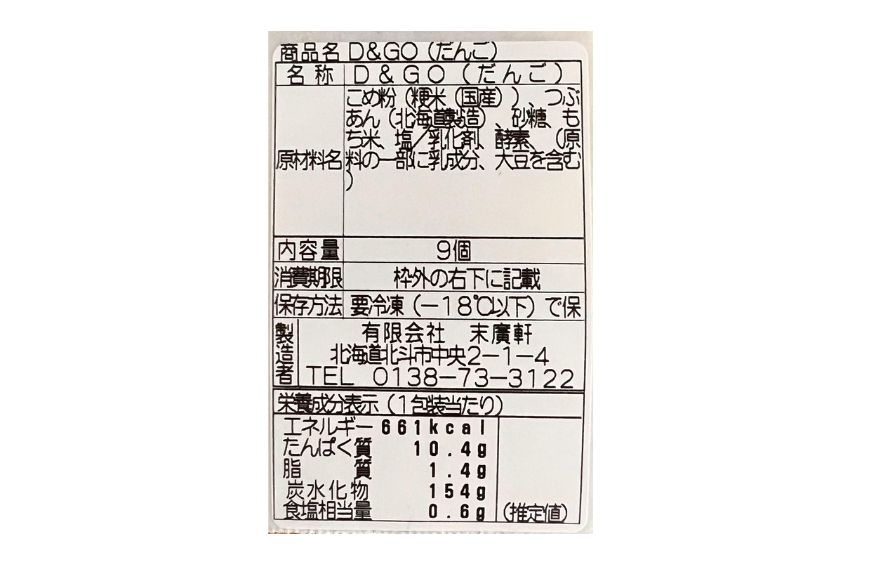 商品名 D&GO(だんご)
名称 D&GO(だんご)
原材料名 こめ粉(粳米(国産))、つぶ
あん(北海道製造)、砂糖、も
ち米、塩/乳化剤、酵素、(原
料の一部に乳成分、大豆を含む
)
内容量 9個
消費期限 枠外の右下に記載
保存方法 要冷凍(-18℃以下)で保
製造者 有限会社 末廣軒
北海道北斗市中央2-1-4
TEL 0138-73-3122
栄養成分表示(1包装当たり)
エネルギー 661kcal
たんぱく質 10.4g
脂質 1.4g
炭水化物 154g
食塩相当量 0.6g (推定値)